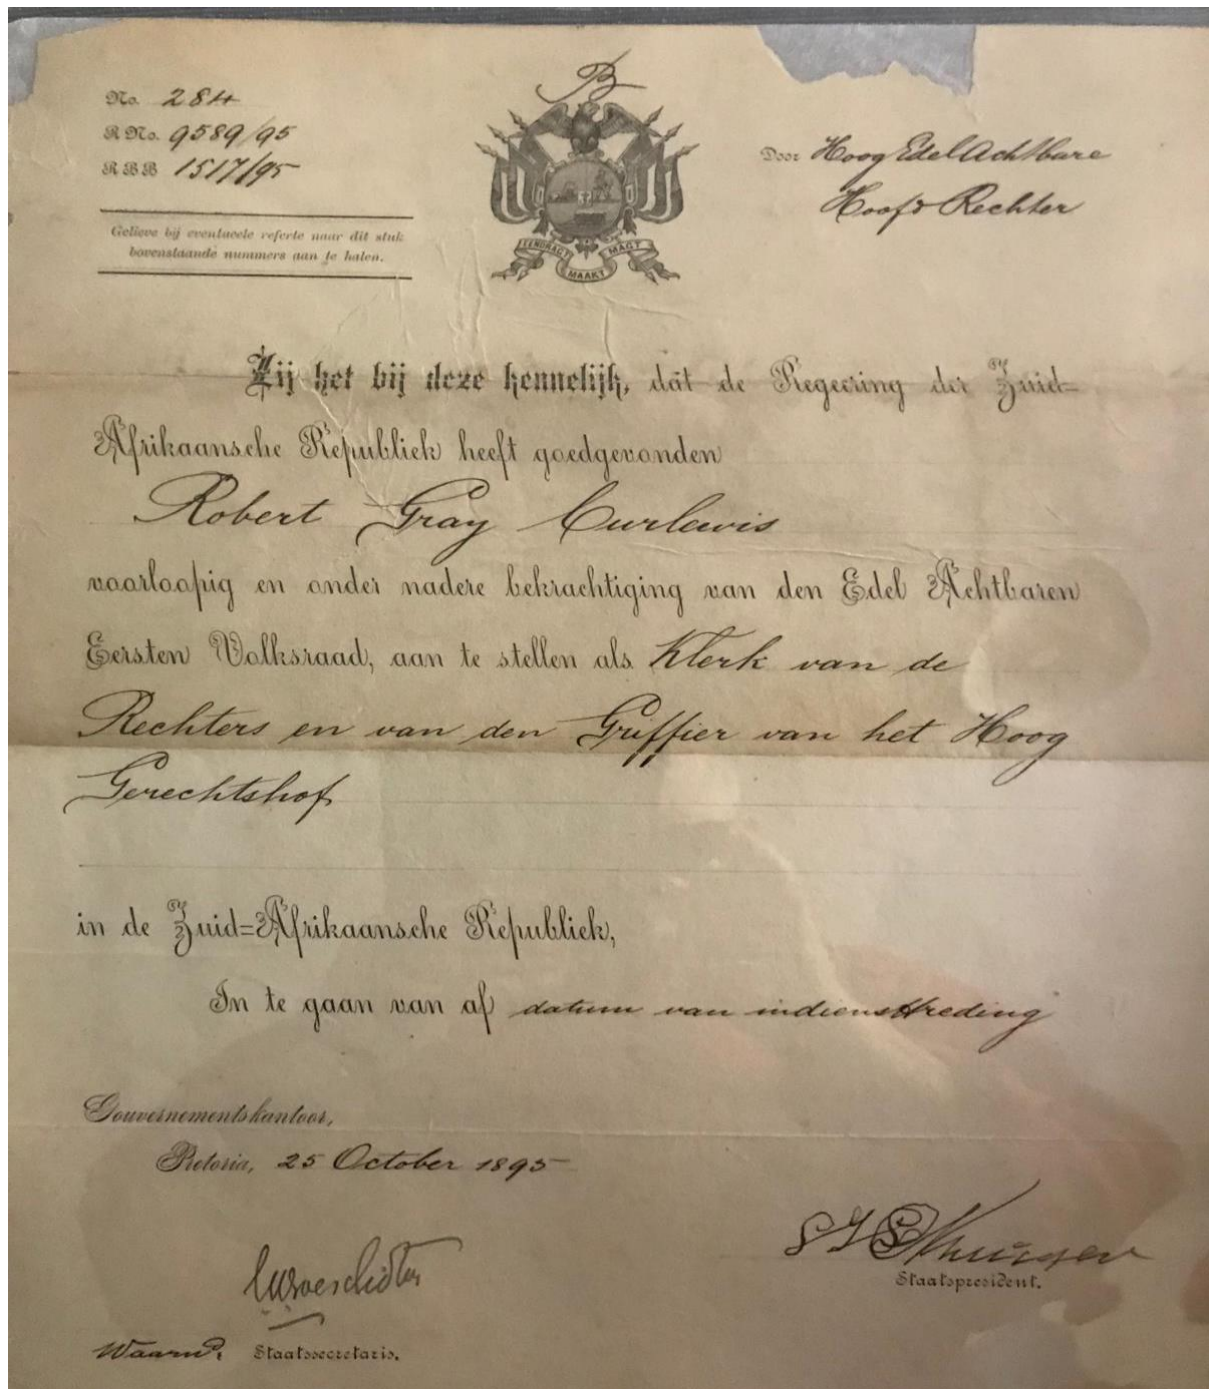 B
No. 284
R No. 9589/95
R B B 1517/95
Gelieve bij eventueele referte naar dit stuk
bovenstaande nummers aan te halen.
EENDRACHT MAAKT MAGT
Door Hoog Edel Achtbare
Hoofd Rechter
Zij het bij deze kennelijk, dat de Regeering der Zuid=
Afrikaansche Republiek heeft goedgevonden
Robert Gray Curlewis
voorloopig en onder nadere bekrachtiging van den Edel Achtbaren
Eersten Volksraad, aan te stellen als Klerk van de
Rechters en van den Griffier van het Hoog
Gerechtshof
in de Zuid=Afrikaansche Republiek,
In te gaan van af datum van indiensttreding
Gouvernementskantoor,
Pretoria, 25 October 1895
S J P Kruger
Staatspresident.
Waarnd. Staatssecretaris.